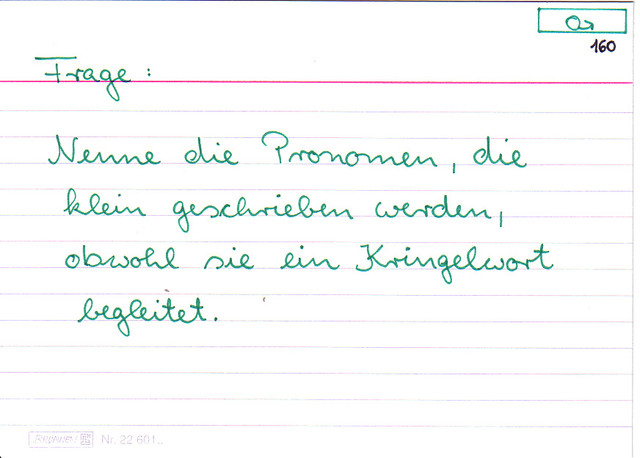 Or
160
Frage:
Nenne die Pronomen, die
klein geschrieben werden,
obwohl sie ein Kringelwort
begleitet.
BRUNNEN Nr. 22 601..